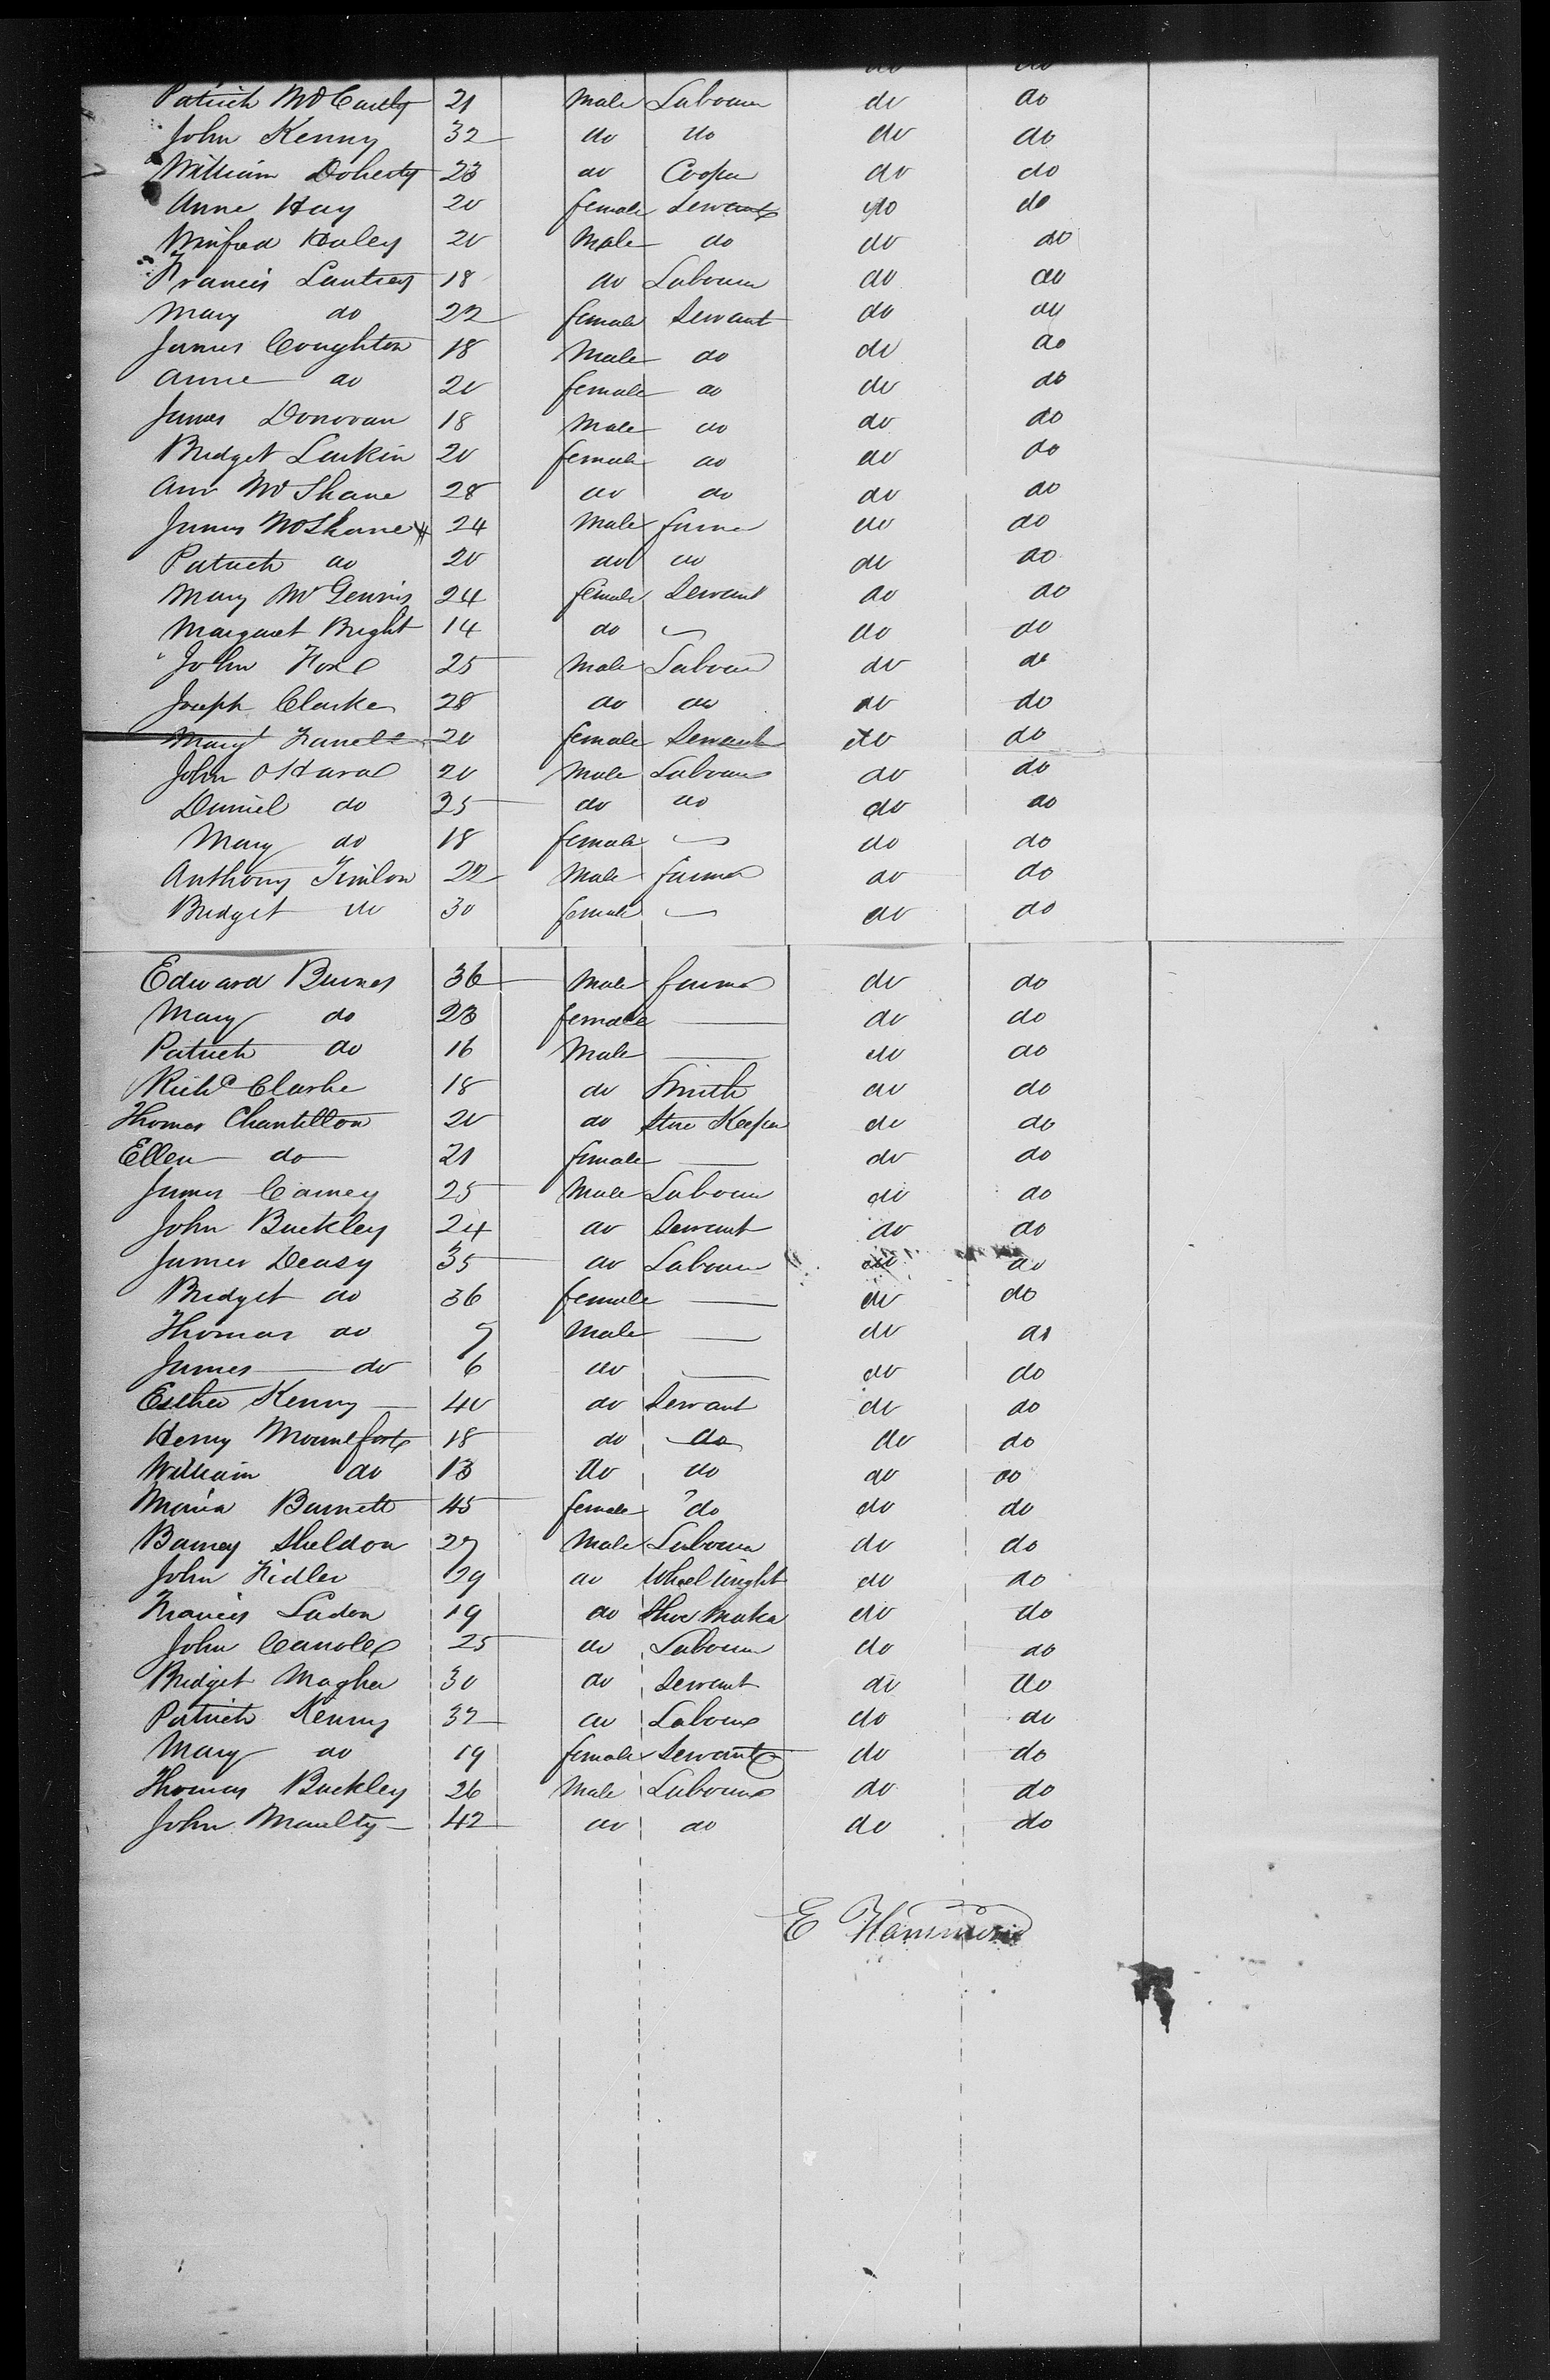 do do
Patrick McCarthy 21 Male Labourer do do
John Kenny 32 do do do do
William Doherty 23 do Cooper do do
Anne Hay 20 female Servant do do
Winifred Haley 20 Male do do do
Francis 18 do Labourer do do
Mary do 22 female Servant do do
James Coughton 18 Male do do do
Anne do 20 female do do do
James Donovan 18 Male do do do
Bridget Larkin 20 female do do do
Ann McShane 28 do do do do
James McShane 24 Male farmer do do
Patrick do 20 do do do do
Mary McGennis 24 female Servant do do
Margaret Bright 14 do do do
John Fox 25 Male Labourer do do
Joseph Clarke 28 do do do do
Margt Farrell 20 female Servant do do
John OHara 20 Male Labourer do do
Daniel do 25 do do do do
Mary do 18 female do do
Anthony 22 Male farmer do do
Bridget do 30 female do do
Edward Burnes 36 Male farmer do do
Mary do 23 female — do do
Patrick do 16 Male — do do
Richd Clarke 18 do Smith do do
Thomas Chantillon 20 do Store Keeper do do
Ellen do 21 female — do do
James Carney 25 Male Labourer do do
John Buckley 24 do Servant do do
James Deasy 35 do Labourer do do
Bridget do 36 female — do do
Thomas do 7 Male — do do
James do 6 do — do do
Esther Kenny 40 do Servant do do
Henry Mountfort 18 do do do do
William do 13 do do do do
Maria Burnett 45 female do do do
Barney Sheldon 27 Male Labourer do do
John Fidler 29 do Wheelwright do do
Francis Laden 19 do Shoe Maker do do
John Carroll 25 do Labourer do do
Bridget Magher 30 do Servant do do
Patrick Kenny 32 do Labourer do do
Mary do 19 female Servant do do
Thomas Buckley 26 Male Labourer do do
John Maulty 42 do do do do
E Hammond